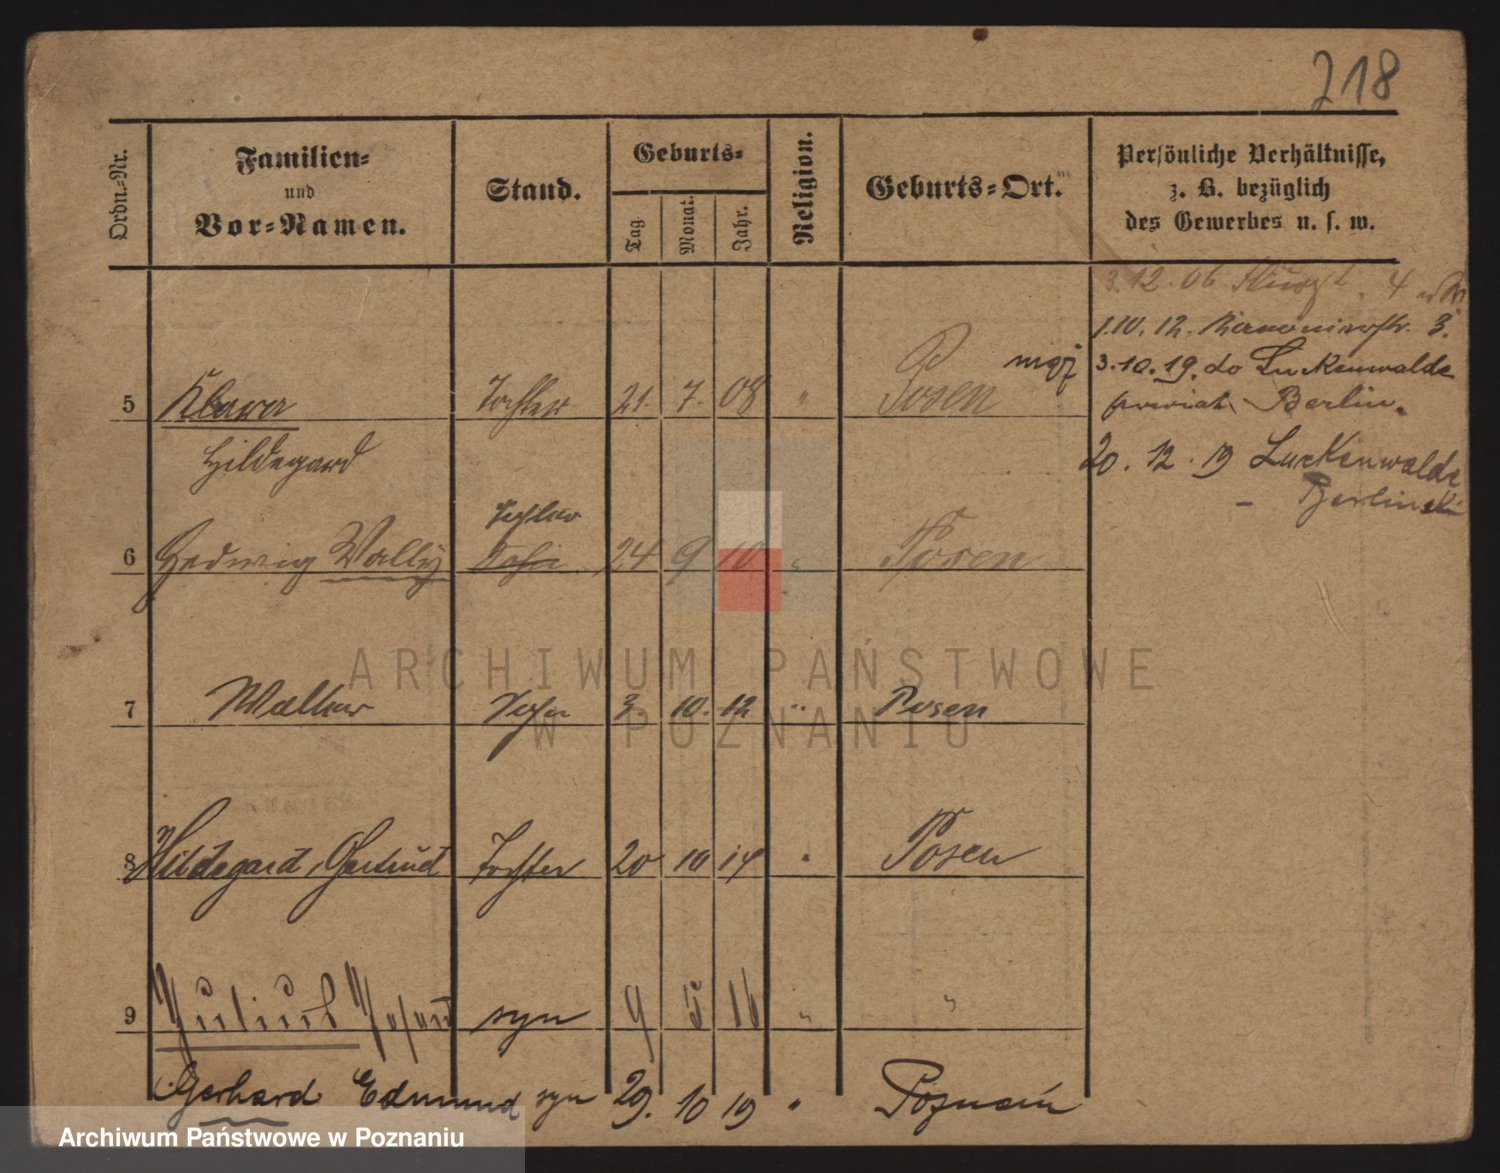 718
Ordn.-Nr.
Familien-
und
Vor-Namen.
Stand.
Geburts-
Tag
Monat.
Jahr.
Religion.
Geburts-Ort.
Persönliche Verhältnisse,
z. B. bezüglich
des Gewerbes u. s. w.
3.12.06 4
1.10.12. 3.
3.10.19. do Luckenwalde
powiat Berlin.
20.12.19 Luckenwalde
- Berlin
5 Klara Tochter 21. 7. 08 " Posen
Hildegard
Tochter
6 Hedwig Wally Sohn 24 9 10 " Posen
7 Walter Sohn 3. 10. 12 " Posen
8 Hildegard, Gertrud Tochter 20 10 14 " Posen
9 Julius Josef syn 9 5 16 " "
Gerhard Edmund syn 29. 10 19 " Poznań
ARCHIWUM PAŃSTWOWE
W POZNANIU
Archiwum Państwowe w Poznaniu